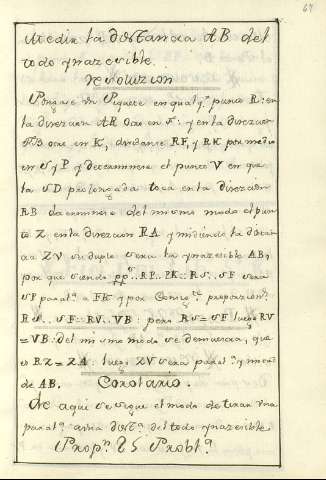 69
Medir la distancia AB del
todo ynazesible.
resoluzion
Pongase un Piquete en qualq.ª punto R: en
la direzion AR otro en F: y en la direzion
RB otro en K, dividanse RF, y RK por medio
en S y P y determinese el punto V en que
la SD prolongada toca en la direzion
RB determinese del mismo modo el pun
to Z en la direzion RA y midiendo la distan
cia ZV su duplo sera la ynazesible AB;
por que siendo RP.. PK:: RS.. SF sera
SP paral.ª a FK y por
RS.. SF:: RV.. VB: pero RS=SF luego RV
=VB: del mismo modo se demuestra, que
es RZ=ZA: luego ZV sera paral.ª y
de AB. Corolario.
De aqui se sigue el modo de tirar una
paral.ª a una dist.ª del todo ynazesible
Prop.n 25 Probl.ª